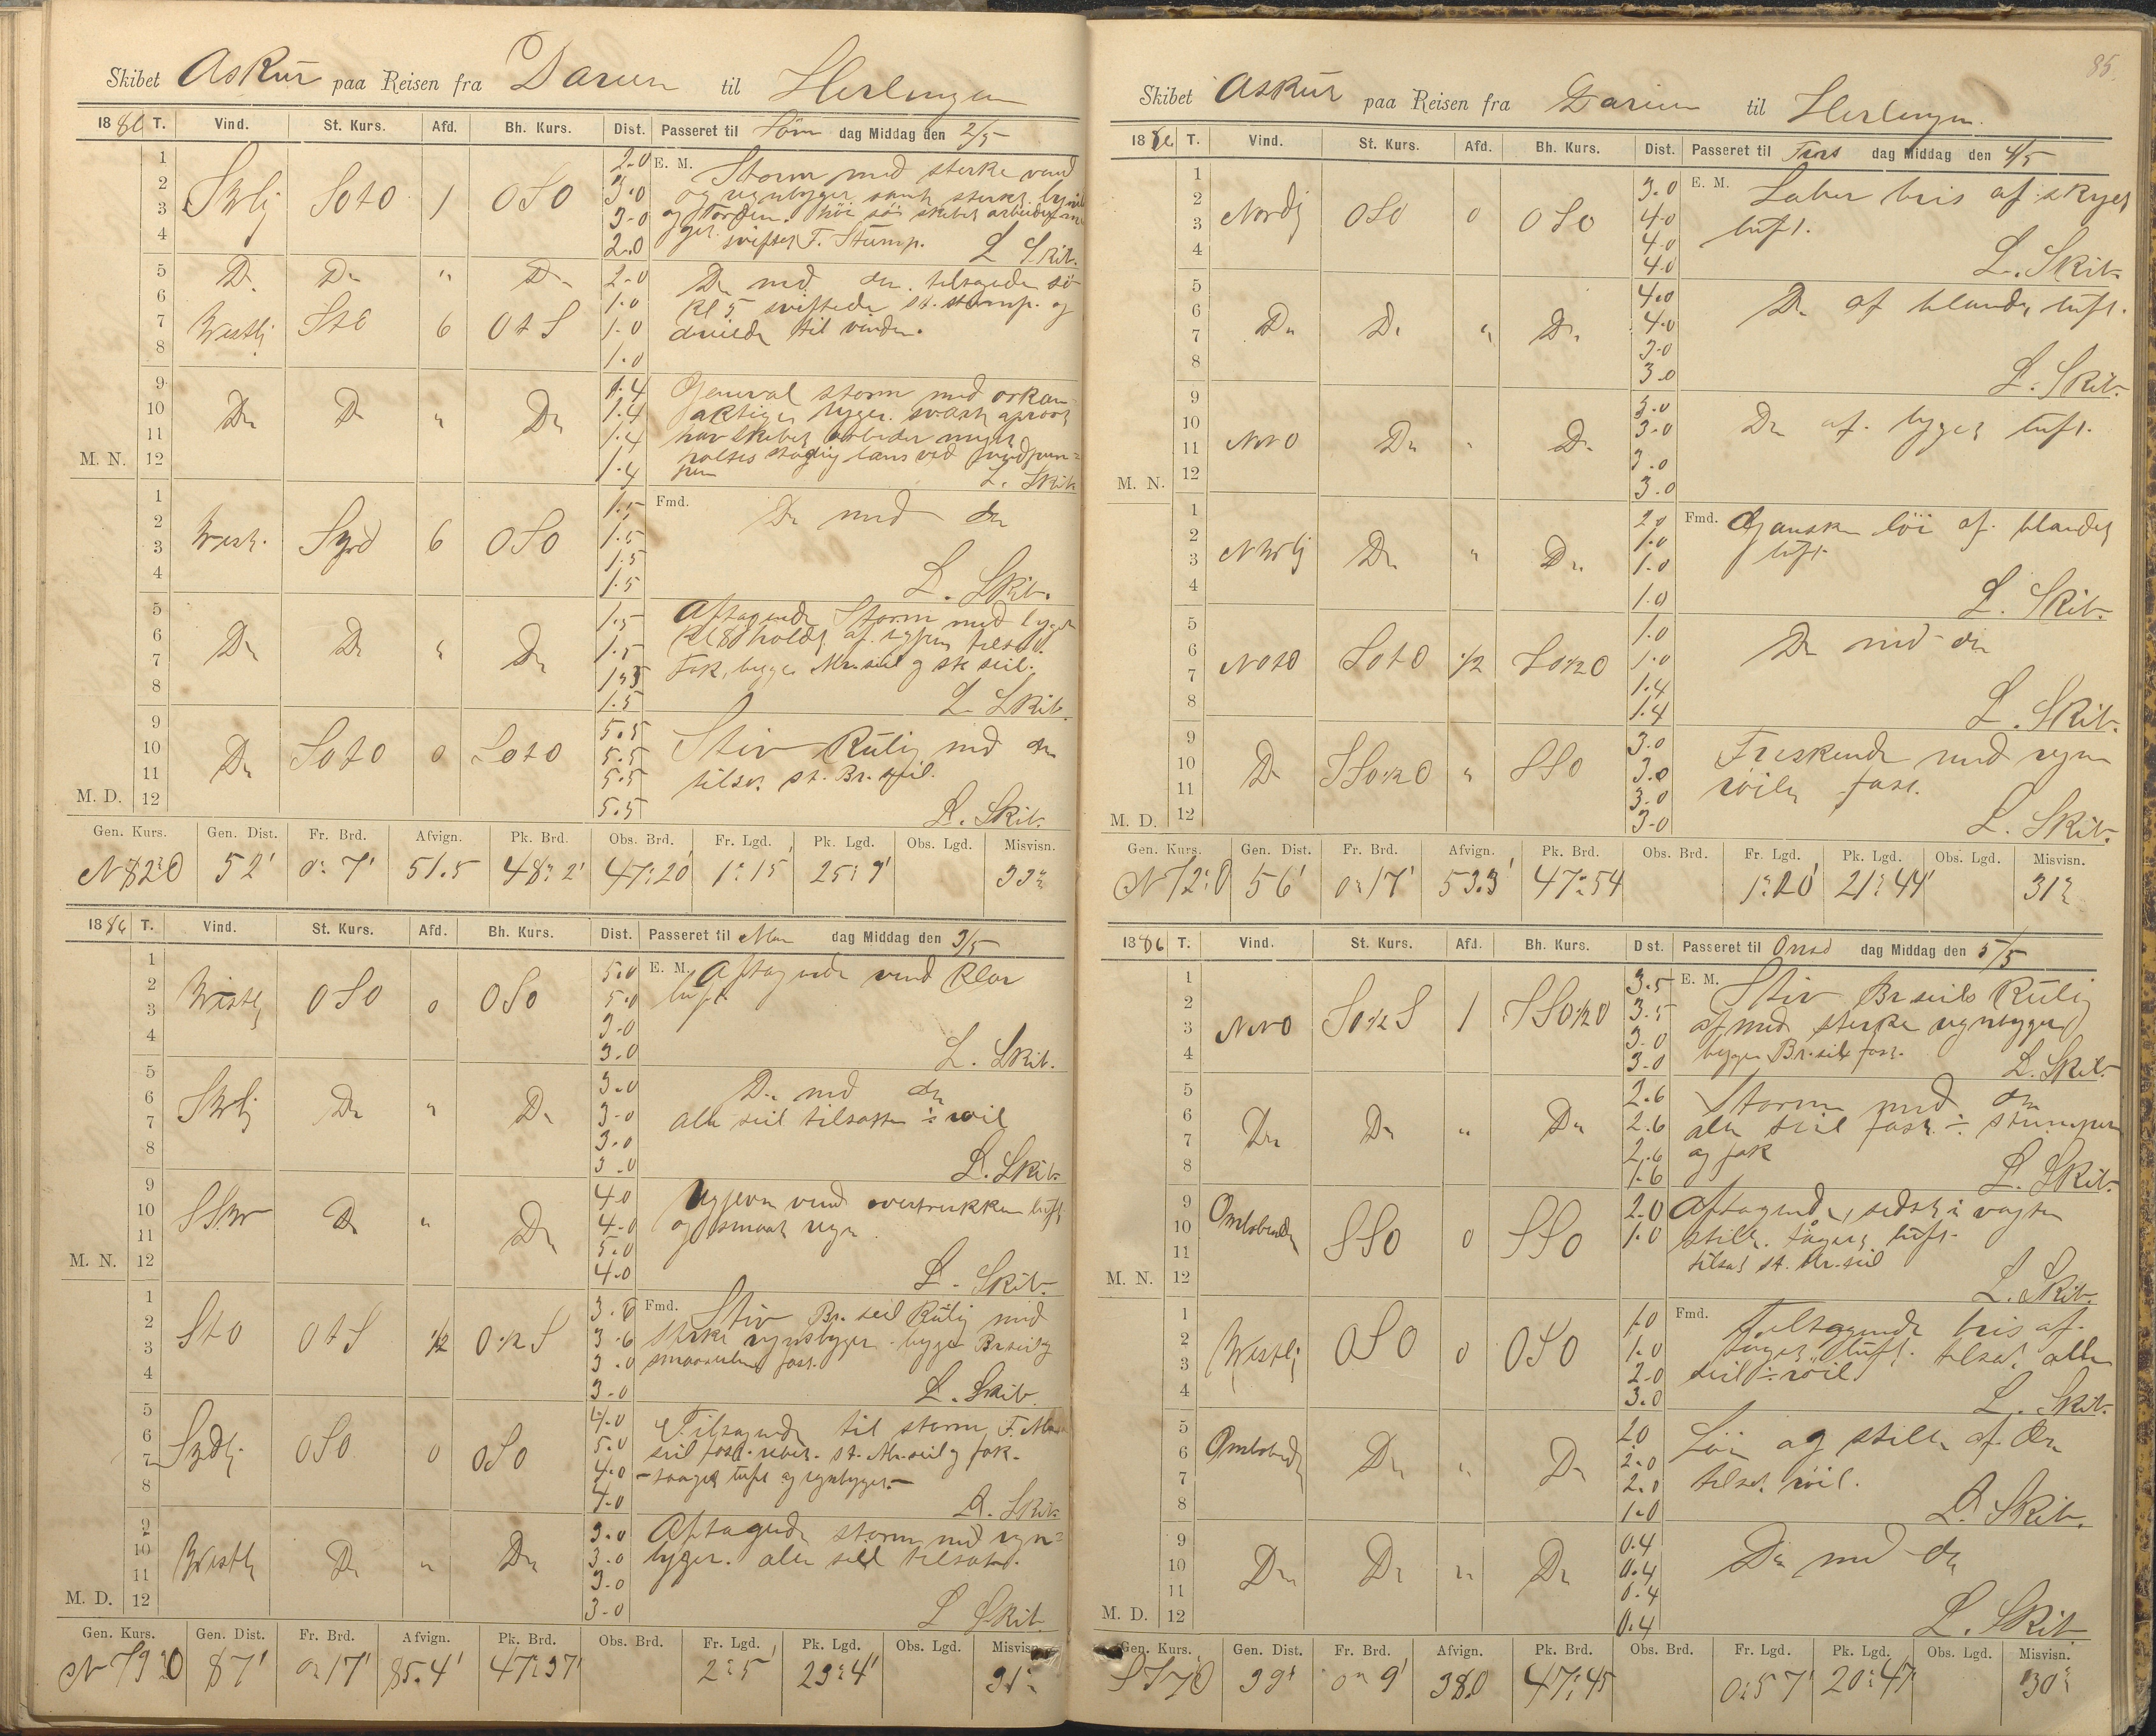 Skibet Askur paa Reisen fra Darien til Herlingen
1886 T. Vind. St. Kurs. Afd. Bh. Kurs. Dist. Passeret til Søn dag Middag den 2/5
1 2.0 E. M. Storm med sterke vind
2 3.0 og regnbyger samt sterkt
3 SWlij SOtO 1 OSO 3.0 og Torden. høi sø skibet arbeider
4 2.0 sviftet F. Stump. L Skib.
5 Do Do " Do 2.0 Do med do. tiltagende sø
6 1.0 Kl 5 sviftede st. stump. og
7 Westlij StE 6 OtS 1.0 dreiede til vinden.
8 1.0
9 1.4 General storm med orkan
10 Do Do " Do 1.4 aktige byger. svært oprørt
11 1.4 hav skibet arbeider meget
M. N. 12 1.4 holdes stadig læns ved vindpum=
pen L. Skib
1 1.5 Fmd. Do med do
2 West. Syd 6 OSO 1.5
3 1.5
4 1.5 L. Skib.
5 1.5 Aftagende Storm med byger
6 Do Do " Do 1.5 Kl 8 holdt af
7 1.5 Fok, begge Mr.seil og stk seil.
8 1.5 L. Skib.
9 5.5 Stiv Kuling med do
10 Do SOtO 0 SOtO 5.5 tilsat st. Br. seil.
11 5.5
M. D. 12 5.5 L. Skib.
Gen. Kurs. Gen. Dist. Fr. Brd. Afvign. Pk. Brd. Obs. Brd. Fr. Lgd. Pk. Lgd. Obs. Lgd. Misvisn.
N 82° O 52' 0° 7' 51.5 48° 2' 47° 20' 1° 15' 25° 9' 33°
1886 T. Vind. St. Kurs. Afd. Bh. Kurs. Dist. Passeret til Man dag Middag den 3/5
1 5.0 E. M. Aftagende vind Klar
2 Westlij OSO 0 OSO 5.0 luft
3 3.0
4 3.0 L. Skib.
5 3.0 Do med do
6 SWlij Do " Do 3.0 alle seil tilsatte ÷ røil
7 3.0
8 3.0 L. Skib.
9 4.0 Ujevn vind overtrukken luft
10 SSW Do " Do 4.0 og smaat regn
11 5.0
M. N. 12 4.0 L. Skib.
1 3.6 Fmd. Stiv Br. seil Kuling med
2 StO OtS ½ O½S 3.6 sterke regnbyger. begge Br.seil og
3 3.0 smaaseilene fast.
4 3.0 L. Skib.
5 4.0 Tiltagende til storm F. Mr
6 Sydlij. OSO 0 OSO 5.0 seil fast. rebet. st. Mr.seil og fok.
7 4.0 – taaget luft og regnbyger. –
8 4.0 L. Skib.
9 3.0 Aftagende storm med regn=
10 Westlij Do " Do 3.0 byger. alle seil tilsatte.
11 3.0
M. D. 12 3.0 L Skib.
Gen. Kurs. Gen. Dist. Fr. Brd. Afvign. Pk. Brd. Obs. Brd. Fr. Lgd. Pk. Lgd. Obs. Lgd. Misvisn.
N 79 O 87' 0° 17' 85.4' 47° 37' 2° 5' 23° 4' 31°
85.
Skibet Askur paa Reisen fra Darien til Herlingen.
1886 T. Vind. St. Kurs. Afd. Bh. Kurs. Dist. Passeret til Tirs dag Middag den 4/5
1 3.0 E. M. Laber bris af skyet
2 Nordlij OSO 0 OSO 4.0 luft.
3 4.0
4 4.0 L. Skib.
5 4.0 Do af blandet luft.
6 Do Do " Do 4.0
7 3.0
8 3.0 L. Skib.
9 3.0 Do af. byget luft.
10 3.0
11 NNO Do " Do 3.0
M. N. 12 3.0
1 2.0 Fmd. Ganske løi af. blandet
2 NWlij Do " Do 1.0 luft.
3 1.0
4 1.0 L. Skib.
5 1.0 Do med do
6 NOtO SOtO ½ SO½O 1.0
7 1.4
8 1.4 L. Skib.
9 3.0 Friskende med regn
10 Do SSO½O " SSO 3.0 røilen fast.
11 3.0
M. D. 12 3.0 L. Skib.
Gen. Kurs. Gen. Dist. Fr. Brd. Afvign. Pk. Brd. Obs. Brd. Fr. Lgd. Pk. Lgd. Obs. Lgd. Misvisn.
N 72° O 56' 0° 17' 53.3' 47° 54 1° 20' 21° 44' 31°
1886 T. Vind. St. Kurs. Afd. Bh. Kurs. Dist. Passeret til Onsd dag Middag den 5/5
1 3.5 E. M. Stiv Br seils Kuling
2 NNO SO½S 1 SSO½O 3.5 af med sterke regnbyger
3 3.0 begge Br. seil fast.
4 3.0 L. Skib.
5 2.6 Storm med do
6 Do Do " Do 2.6 alle seil fast ÷ stumpen
7 2.6 og fok
8 1.6 L. Skib.
9 Omløbende 2.0 Aftagende, sidst i vagten
10 SSO 0 SSO 1.0 stille. taaget luft.
11 tilsat st. Mr. seil
M. N. 12 L. Skib.
1 1.0 Fmd. Tiltagende bris af.
2 Westlij OSO 0 OSO 1.0 taaget luft. tilsat alle
3 2.0 seil ÷ røil
4 3.0 L. Skib.
5 2.0 Løi og stille af do
6 Omløbende Do " Do 2.0 tilsat røil.
7 2.0
8 1.0 L. Skib.
9 0.4 Do med do
10 Do Do " Do 0.4
11 0.4
M. D. 12 0.4 L. Skib.
Gen. Kurs. Gen. Dist. Fr. Brd. Afvign. Pk. Brd. Obs. Brd. Fr. Lgd. Pk. Lgd. Obs. Lgd. Misvisn.
S 77 O 39' 0° 9' 38.0 47° 45 0° 57' 20° 47' 30°